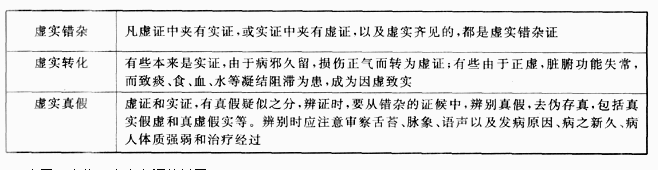 虚实错杂 凡虚证中夹有实证,或实证中夹有虚证,以及虚实齐见的,都是虚实错杂证
虚实转化 有些本来是实证,由于病邪久留,损伤正气而转为虚证;有些由于正虚,脏腑功能失常,
而致痰、食、血、水等凝结阻滞为患,成为因虚致实
虚实真假 虚证和实证,有真假疑似之分,辨证时,要从错杂的证候中,辨别真假,去伪存真,包括真
实假虚和真虚假实等。辨别时应注意审察舌苔、脉象、语声以及发病原因、病之新久、病
人体质强弱和治疗经过